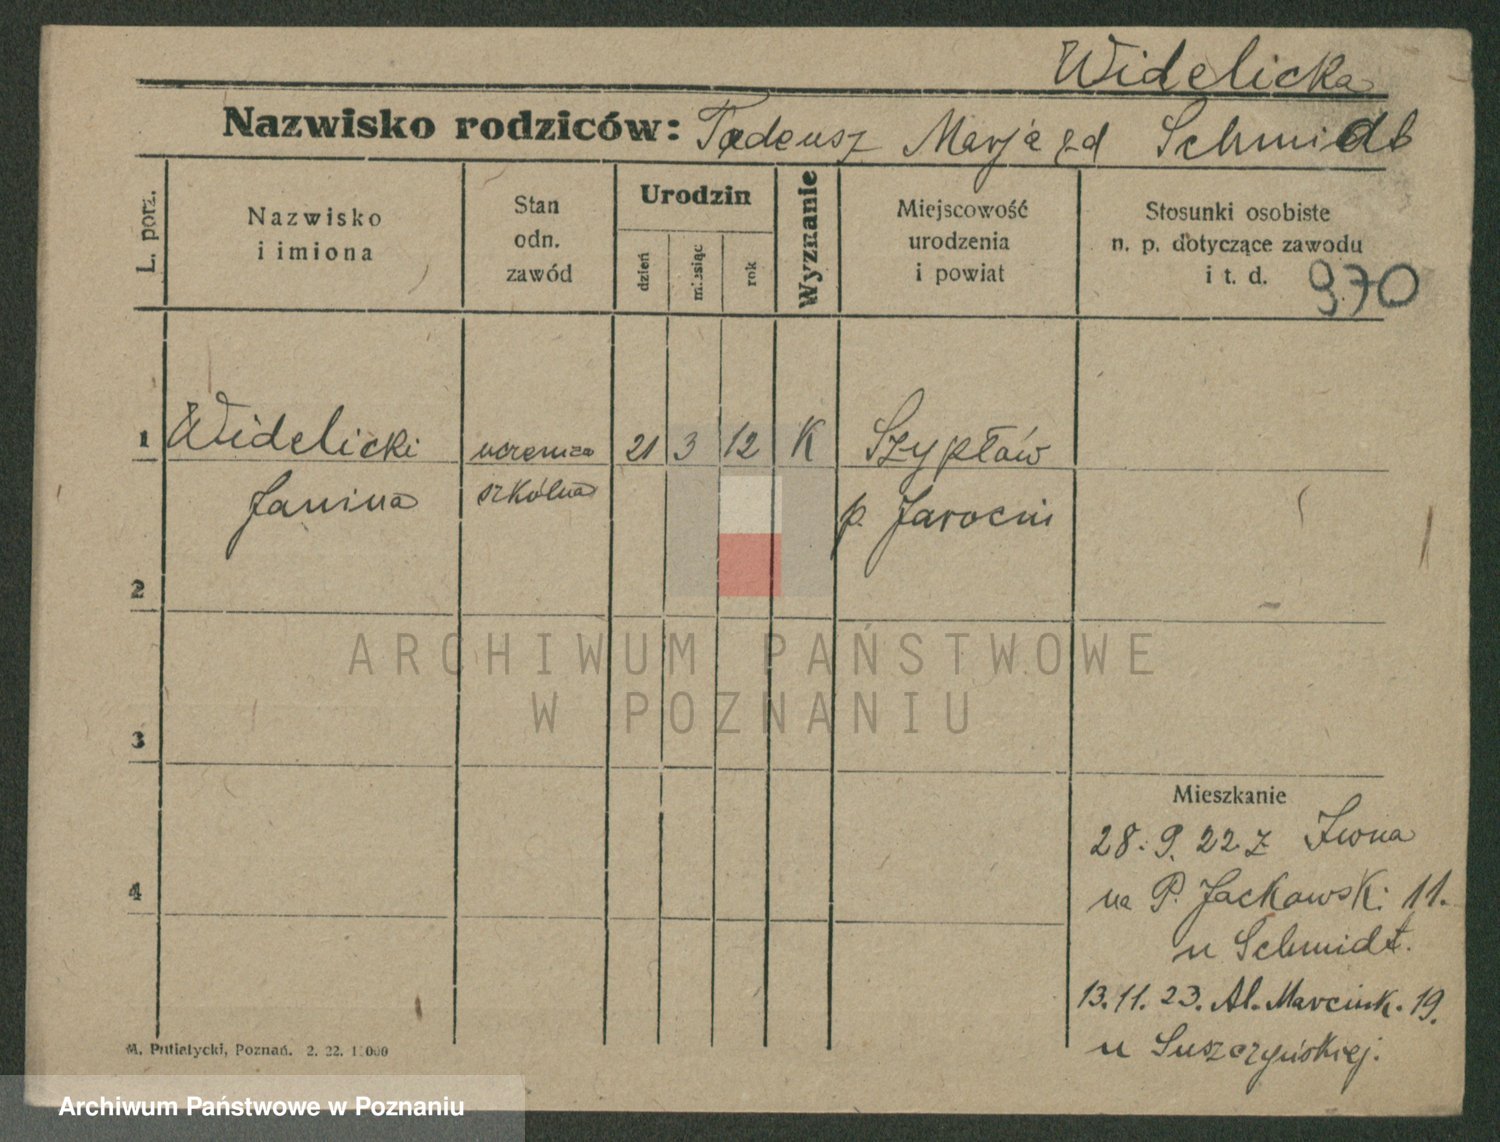 Widelicka
Nazwisko rodziców: Tadeusz Marja zd Schmidt
L. porz.
Nazwisko
i imiona
Stan
odn.
zawód
Urodzin
dzień
miesiąc
rok
Wyznanie
Miejscowość
urodzenia
i powiat
Stosunki osobiste
n. p. dotyczące zawodu
i t. d.
970
1 Widelicki uczenica 21 3 12 K Szypłów
Janina szkólna p. Jarocin
2
3
4
Mieszkanie
28. 9. 22 z Iwna
na P. Jackowsk: 11.
u Schmidt.
13. 11. 23. Al. Marcink. 19.
u Suszczyńskiej.
M. Putiatycki, Poznań. 2. 22. 1 000
ARCHIWUM PAŃSTWOWE
W POZNANIU
Archiwum Państwowe w Poznaniu